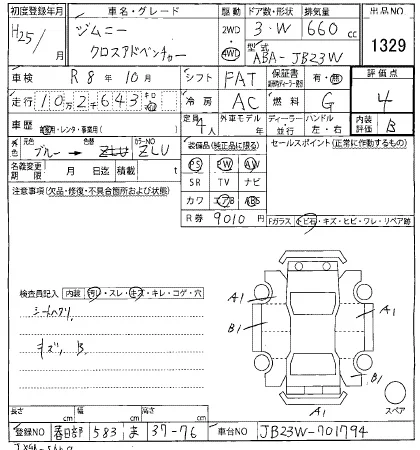 初度登録年月 車名・グレード 駆動 ドア数・形状 排気量 出品NO
H25/ 月 ジムニー 2WD 3・W 660 cc 1329
クロスアドベンチャー 4WD 型式 ABA-JB23W
車検 R8年10月 シフト FAT 保証書 有・無 評価点
走行 102643 km 冷房 AC 燃料 G 4
車歴 自家用・レンタ・事業用( ) 定員 4人 外車モデル 年 ディーラー 並行 ハンドル 左・右 内装評価 B
外色 元色 ブルー → 色替 ZLU カラーNO ZLU 装備品(純正品に限る) セールスポイント(正常に作動するもの)
名義変更期限 月 日迄 積載 t PS PW AW
注意事項(欠品・修復・不具合箇所および状態) SR TV ナビ
カワ エアB ABS
R券 9010 円 Fガラス トビ石・キズ・ヒビ・ワレ・リペア跡
検査員記入 内装 汚レ・スレ・キズ・キレ・コゲ・穴
A1
A1
B1
シートヘタリ
キズ, B
B1
A1
スペア
長さ cm 幅 cm 高さ cm
登録NO 春日部 583 ま 37-76 車台NO JB23W-701794